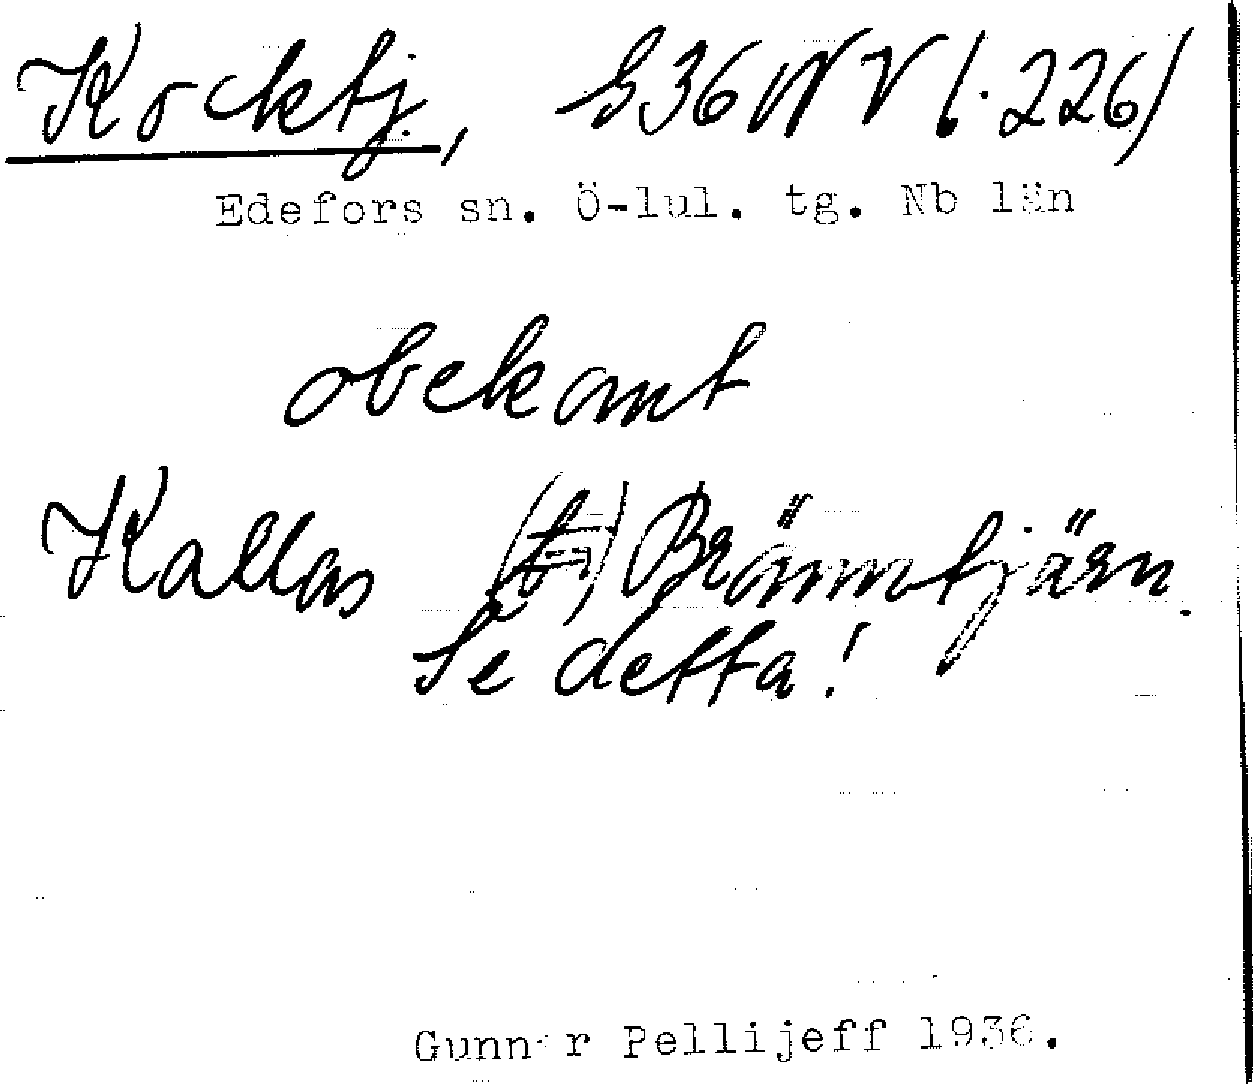 Kocktj., S36NV (·226)
Edefors sn. Ö-lul. tg. Nb län
obekant
Kallas Bränntjärn.
Se detta!
Gunnar Pellijeff 1936.